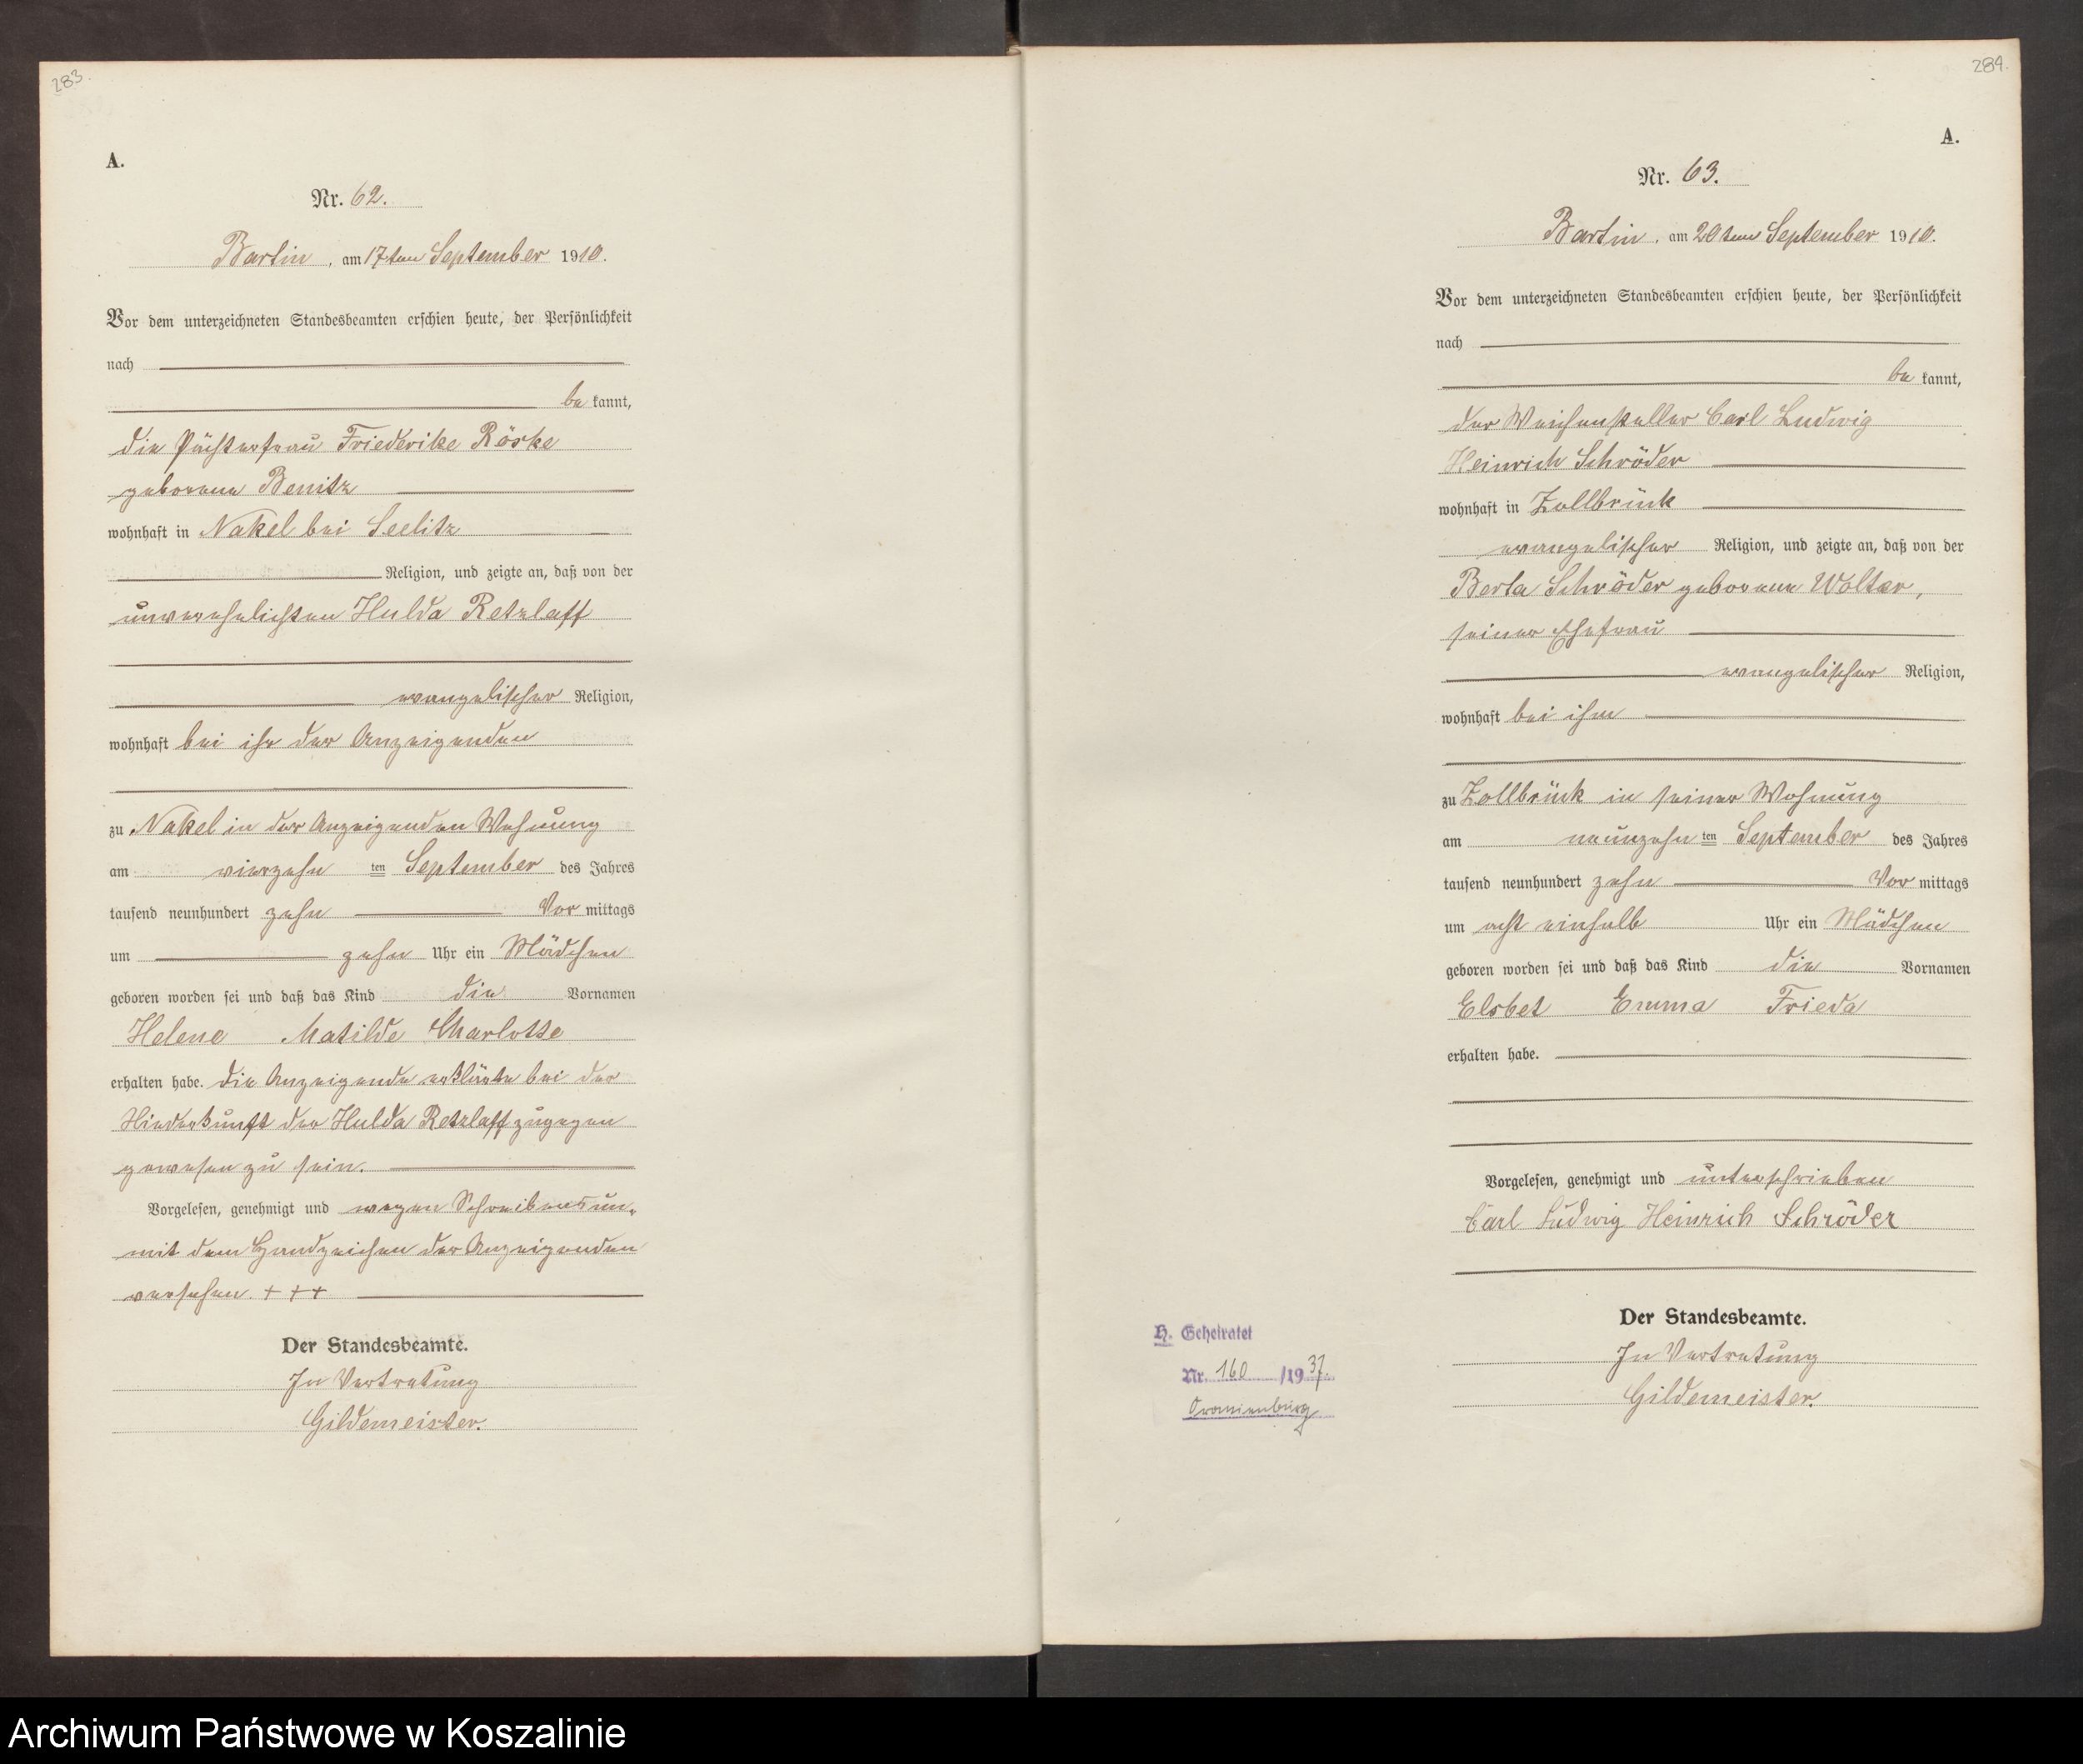 283.
A.
Nr. 62.
Bartin, am 17ten September 1910.
Vor dem unterzeichneten Standesbeamten erschien heute, der Persönlichkeit
nach
be kannt,
die Pächterfrau Friederike Röske
geborene Benitz
wohnhaft in Nakel bei Seelitz
Religion, und zeigte an, daß von der
unverehelichten Hulda Retzlaff
evangelischer Religion,
wohnhaft bei ihr der Anzeigenden
zu Nakel in der Anzeigenden Wohnung
am vierzehn ten September des Jahres
tausend neunhundert zehn Vor mittags
um zehn Uhr ein Mädchen
geboren worden sei und daß das Kind die Vornamen
Helene Matilde Charlotte
erhalten habe. Die Anzeigende erklärte bei der
Niederkunft der Hulda Retzlaff zugegen
gewesen zu sein.
Vorgelesen, genehmigt und wegen Schreibensun.
mit dem Handzeichen der Anzeigenden
versehen. + + +
Der Standesbeamte.
In Vertretung
Gildemeister.
284.
A.
Nr. 63.
Bartin, am 20ten September 1910.
Vor dem unterzeichneten Standesbeamten erschien heute, der Persönlichkeit
nach
be kannt,
der Weichensteller Carl Ludwig
Heinrich Schröder
wohnhaft in Zollbrück
evangelischer Religion, und zeigte an, daß von der
Berta Schröder geborene Wolter,
seiner Ehefrau
evangelischer Religion,
wohnhaft bei ihm
zu Zollbrück in seiner Wohnung
am neunzehn ten September des Jahres
tausend neunhundert zehn Vor mittags
um acht einhalb Uhr ein Mädchen
geboren worden sei und daß das Kind die Vornamen
Elsbet Emma Frieda
erhalten habe.
Vorgelesen, genehmigt und unterschrieben
Carl Ludwig Heinrich Schröder
Der Standesbeamte.
In Vertretung
Gildemeister.
H. Geheiratet
Nr. 160 /1937.
Oranienburg
Archiwum Państwowe w Koszalinie